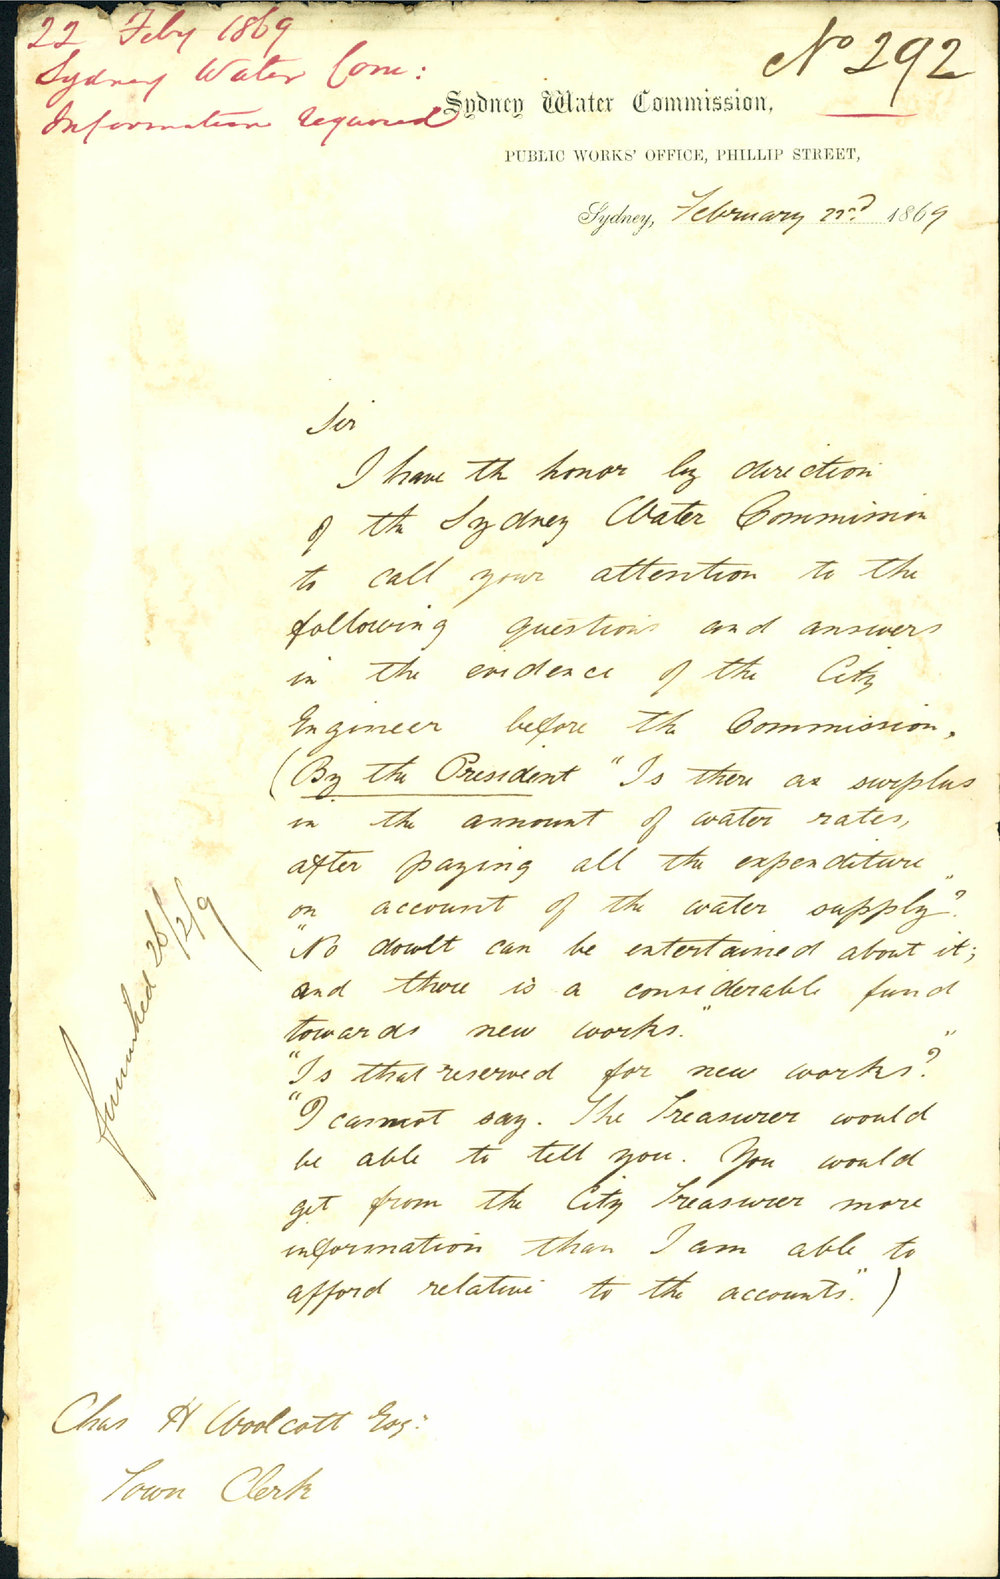 22 Feby 1869
Sydney Water Com:
Information required
No 292
Sydney Water Commission,
PUBLIC WORKS' OFFICE, PHILLIP STREET,
Sydney, February 22nd 1869
Sir
I have the honor by direction
of the Sydney Water Commission
to call your attention to the
following questions and answers
in the evidence of the City
Engineer before the Commission.
(By the President "Is there a surplus
in the amount of water rates,
after paying all the expenditure
on account of the water supply?"
"No doubt can be entertained about it;
and there is a considerable fund
towards new works."
"Is that reserved for new works?"
"I cannot say. The Treasurer would
be able to tell you. You would
get from the City Treasurer more
information than I am able to
afford relative to the accounts.")
26/2/9
Chas H Woolcott Esq:
Town Clerk